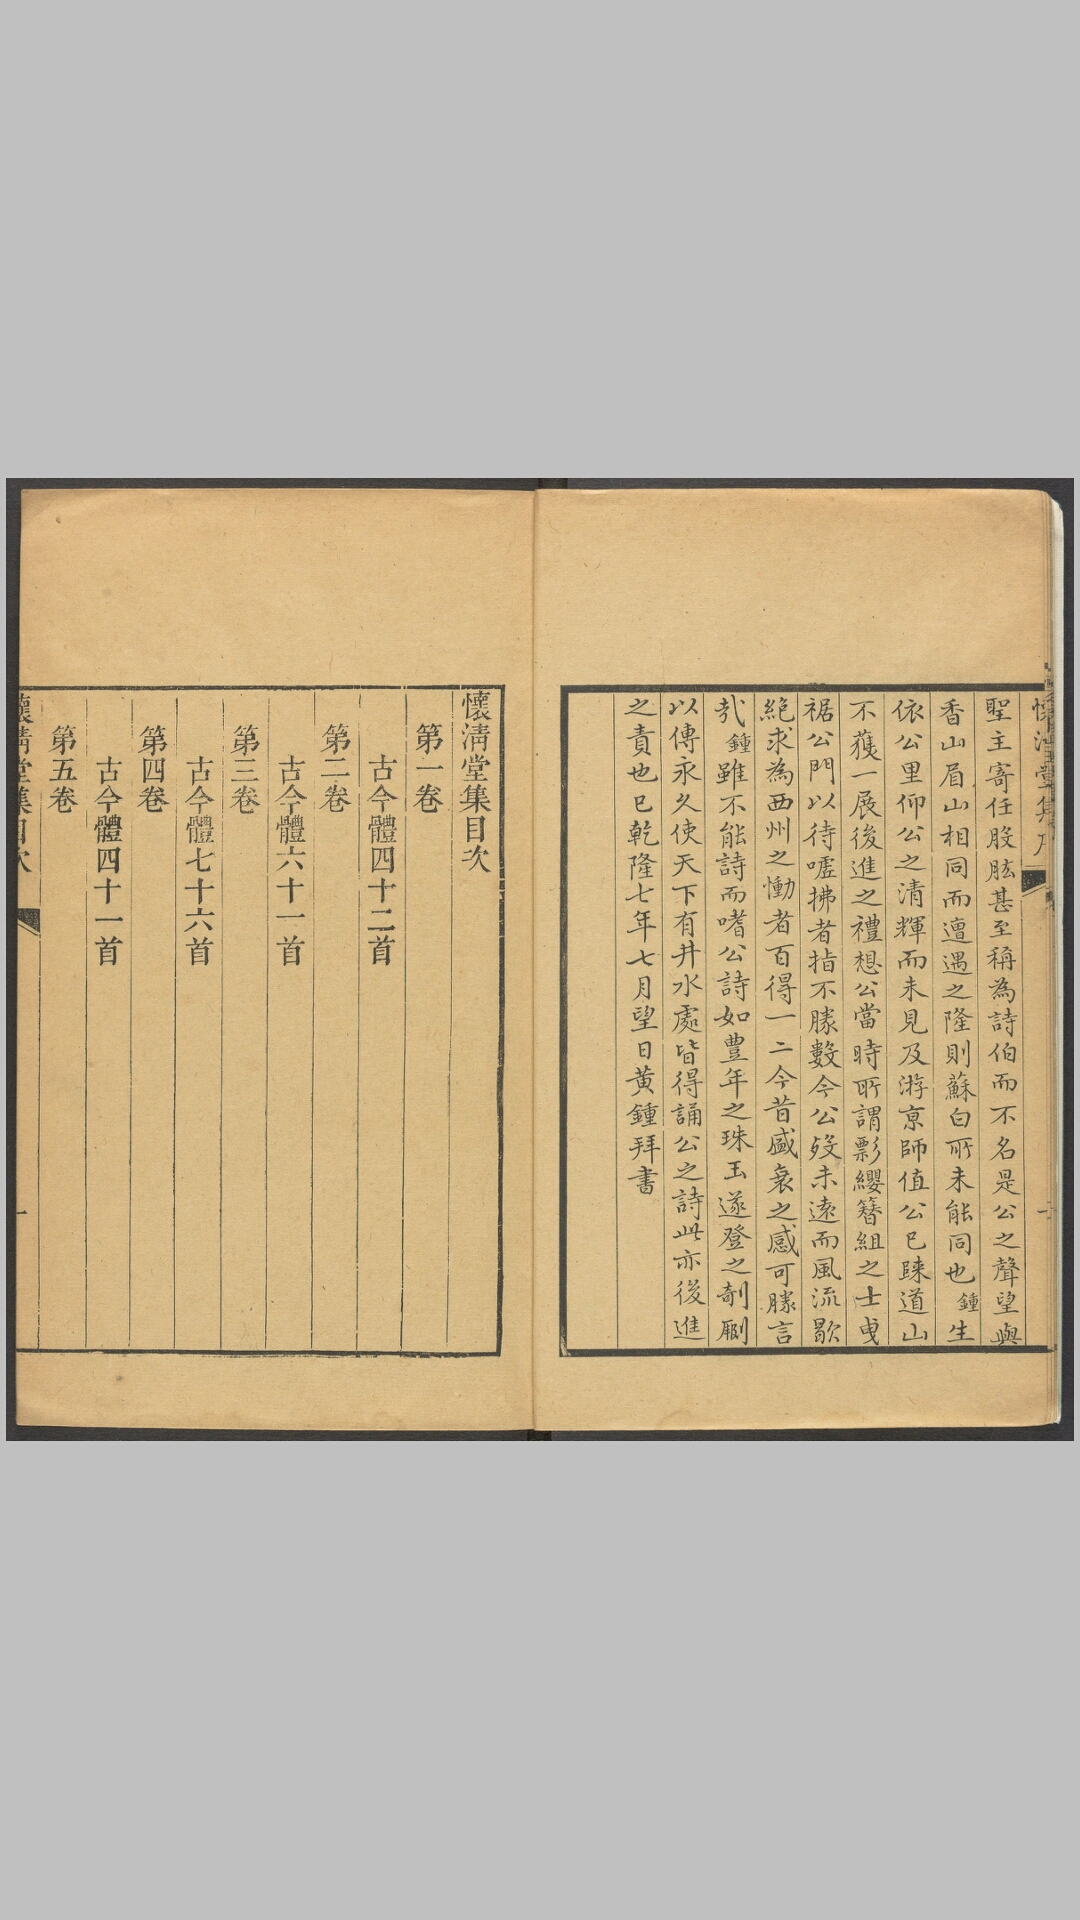 聖主寄任股肱甚至稱為詩伯而不名是公之聲望與
香山眉山相同而遭遇之隆則蘇白所未能同也鍾生
依公里仰公之清輝而未見及游京師值公已騎道山
不獲一展後進之禮想公當時所謂影纓簪組之士曳
裾公門以待噓拂者指不勝數今公歿未遠而風流歇
絕求為西州之慟者百得一二今昔盛衰之感可勝言
哉鍾雖不能詩而嗜公詩如豐年之珠玉遂登之剞劂
以傳永久使天下有井水處皆得誦公之詩此亦後進
之責也已乾隆七年七月望日黃鍾拜書
懷清堂集目次
第一卷
古今體四十二首
第二卷
古今體六十一首
第三卷
古今體七十六首
第四卷
古今體四十一首
第五卷
懷清堂集目次
一